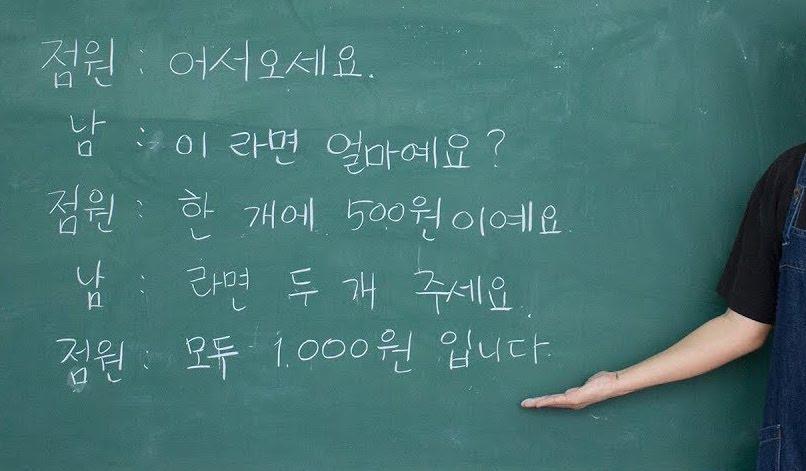 점원 : 어서오세요.
남 : 이 라면 얼마예요?
점원 : 한 개에 500원이예요.
남 : 라면 두 개 주세요.
점원 : 모두 1.000원 입니다.